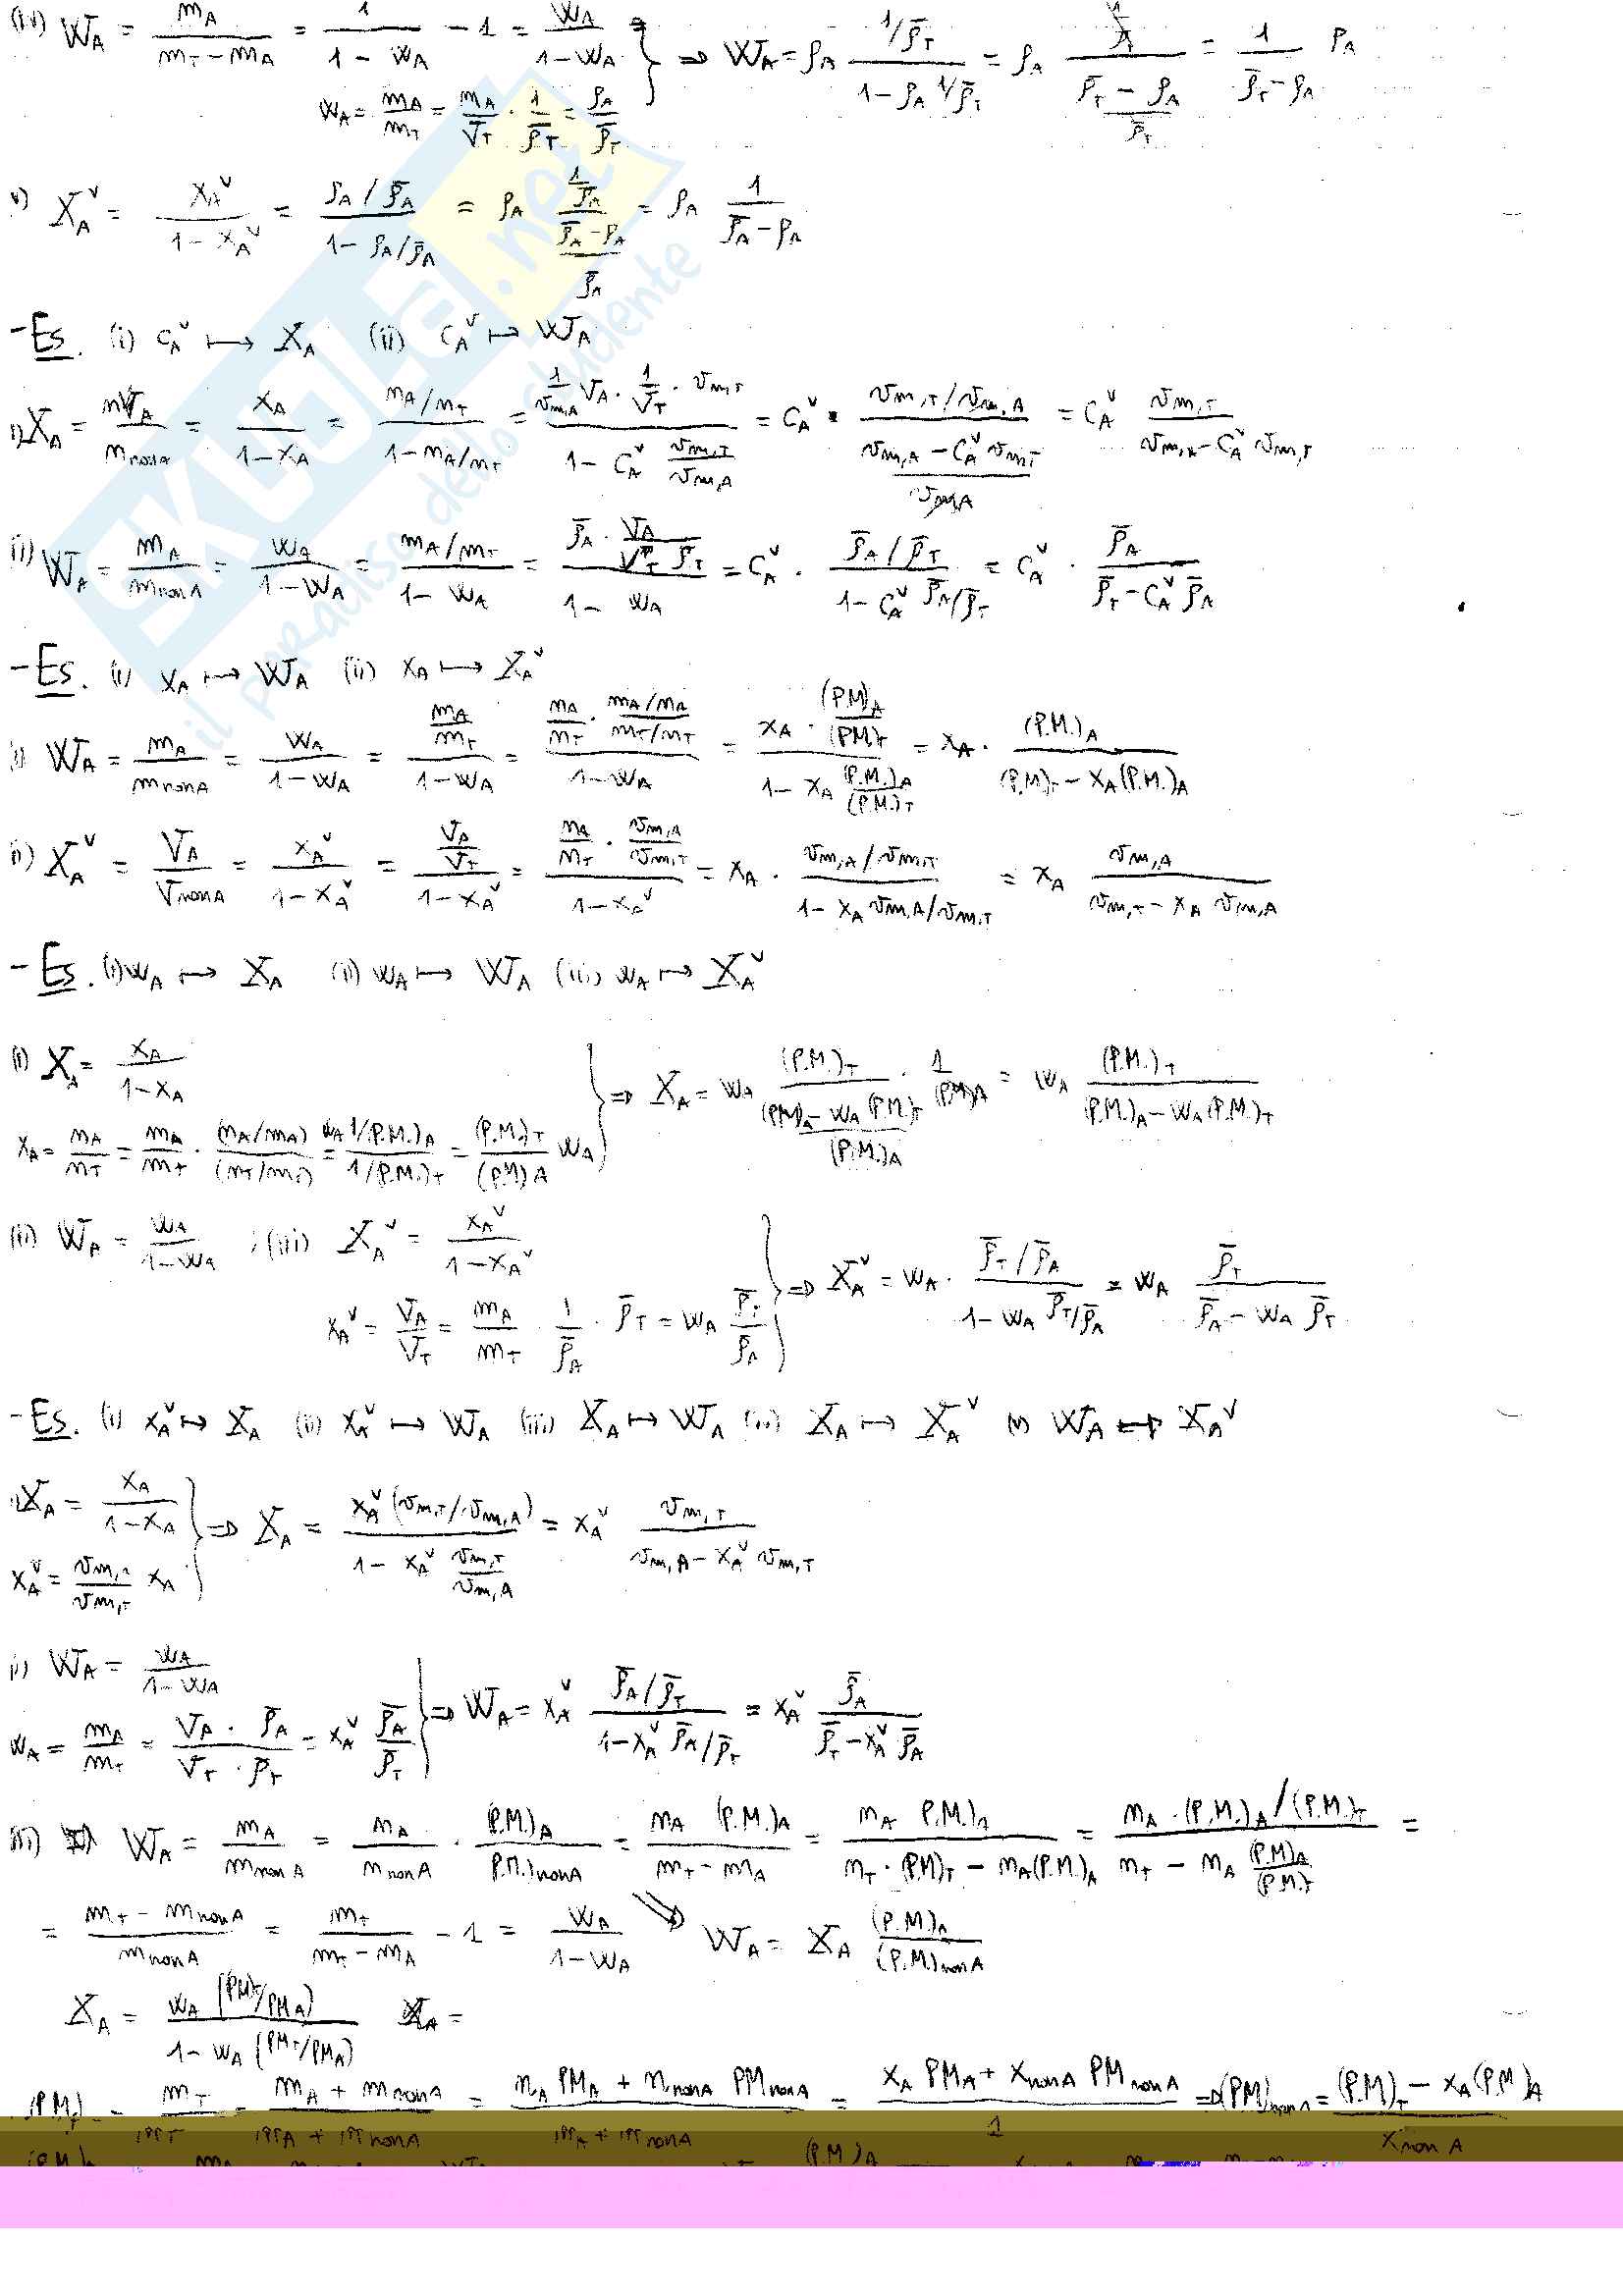 (iv) W_A = m_A/(m_T − m_A) = 1/(1 − w_A) − 1 = w_A/(1 − w_A) } ⇒ W_A = ρ_A (1/ρ̄_T)/(1 − ρ_A 1/ρ̄_T) = ρ_A (1/ρ̄_T)/((ρ̄_T − ρ_A)/ρ̄_T) = 1/(ρ̄_T − ρ_A) ρ_A
w_A = m_A/m_T = m_A/V_T · 1/ρ̄_T = ρ_A/ρ̄_T
v) X_A^v = x_A^v/(1 − x_A^v) = (ρ_A/ρ̄_A)/(1 − ρ_A/ρ̄_A) = ρ_A (1/ρ̄_A)/((ρ̄_A − ρ_A)/ρ̄_A) = ρ_A 1/(ρ̄_A − ρ_A)
- Es. (i) C_A^v ↦ X_A (ii) C_A^v ↦ W_A
i) X_A = n_A/n_nonA = x_A/(1 − x_A) = (n_A/n_T)/(1 − n_A/n_T) = (1/v_m,A V_A · 1/V_T · v_m,T)/(1 − C_A^v v_m,T/v_m,A) = C_A^v · (v_m,T/v_m,A)/((v_m,A − C_A^v v_m,T)/v_m,A) = C_A^v v_m,T/(v_m,A − C_A^v v_m,T)
(ii) W_A = m_A/m_nonA = w_A/(1 − w_A) = (m_A/m_T)/(1 − w_A) = (ρ̄_A · V_A/(V_T ρ̄_T))/(1 − w_A) = C_A^v · (ρ̄_A/ρ̄_T)/(1 − C_A^v ρ̄_A/ρ̄_T) = C_A^v · ρ̄_A/(ρ̄_T − C_A^v ρ̄_A)
- Es. (i) x_A ↦ W_A (ii) x_A ↦ X_A^v
i) W_A = m_A/m_nonA = w_A/(1 − w_A) = (m_A/m_T)/(1 − w_A) = (n_A/n_T · (m_A/n_A)/(m_T/n_T))/(1 − w_A) = (x_A · (P.M.)_A/(P.M.)_T)/(1 − x_A (P.M.)_A/(P.M.)_T) = x_A · (P.M.)_A/((P.M.)_T − x_A (P.M.)_A)
ii) X_A^v = V_A/V_nonA = x_A^v/(1 − x_A^v) = (V_A/V_T)/(1 − x_A^v) = (n_A/n_T · v_m,A/v_m,T)/(1 − x_A^v) = x_A · (v_m,A/v_m,T)/(1 − x_A v_m,A/v_m,T) = x_A v_m,A/(v_m,T − x_A v_m,A)
- Es. (i) w_A ↦ X_A (ii) w_A ↦ W_A (iii) w_A ↦ X_A^v
(i) X_A = x_A/(1 − x_A) } ⇒ X_A = w_A (P.M.)_T/(((P.M.)_A − w_A (P.M.)_T)/(P.M.)_A) · 1/(P.M.)_A = w_A (P.M.)_T/((P.M.)_A − w_A (P.M.)_T)
x_A = n_A/n_T = m_A/m_T · (n_A/m_A)/(n_T/m_T) = w_A 1/(P.M.)_A/1/(P.M.)_T = (P.M.)_T/(P.M.)_A w_A
(ii) W_A = w_A/(1 − w_A) ; (iii) X_A^v = x_A^v/(1 − x_A^v) } ⇒ X_A^v = w_A · (ρ̄_T/ρ̄_A)/(1 − w_A ρ̄_T/ρ̄_A) = w_A ρ̄_T/(ρ̄_A − w_A ρ̄_T)
x_A^v = V_A/V_T = m_A/m_T · 1/ρ̄_A · ρ̄_T = w_A ρ̄_T/ρ̄_A
- Es. (i) x_A^v ↦ X_A (ii) x_A^v ↦ W_A (iii) X_A ↦ W_A (iv) X_A ↦ X_A^v (v) W_A ↦ X_A^v
i) X_A = x_A/(1 − x_A) } ⇒ X_A = x_A^v (v_m,T/v_m,A)/(1 − x_A^v v_m,T/v_m,A) = x_A^v v_m,T/(v_m,A − x_A^v v_m,T)
x_A^v = v_m,A/v_m,T x_A
ii) W_A = w_A/(1 − w_A) } ⇒ W_A = x_A^v (ρ̄_A/ρ̄_T)/(1 − x_A^v ρ̄_A/ρ̄_T) = x_A^v ρ̄_A/(ρ̄_T − x_A^v ρ̄_A)
w_A = m_A/m_T = (V_A · ρ̄_A)/(V_T · ρ̄_T) = x_A^v ρ̄_A/ρ̄_T
iii) W_A = m_A/m_nonA = n_A/n_nonA · (P.M.)_A/(P.M.)_nonA = n_A (P.M.)_A/(m_T − m_A) = n_A (P.M.)_A/(n_T · (P.M.)_T − n_A (P.M.)_A) = n_A · (P.M.)_A/(P.M.)_T/(n_T − n_A (P.M.)_A/(P.M.)_T) =
= (m_T − m_nonA)/m_nonA = m_T/(m_T − m_A) − 1 = w_A/(1 − w_A) ⇒ W_A = X_A (P.M.)_A/(P.M.)_nonA
X_A = w_A (PM_T/PM_A)/(1 − w_A (PM_T/PM_A)) X_A =
(P.M.)_T = m_T/n_T = (m_A + m_nonA)/(n_A + n_nonA) = (n_A PM_A + n_nonA PM_nonA)/(n_A + n_nonA) = (x_A PM_A + x_nonA PM_nonA)/1 ⇒ (PM)_nonA = ((P.M.)_T − x_A (P.M.)_A)/x_nonA
SKUOLA.net
il paradiso dello studente